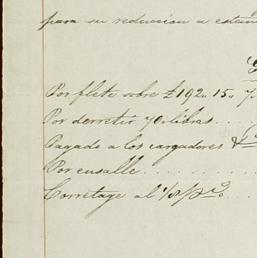 para su reduccion a
Por flete sobre £192.. 15.. 7.
Por derretir 70 libras . . . .
Pagado a los cargadores &
Por ensalle . . . . . . . . .
Corretage al 1/8 p% . . . .